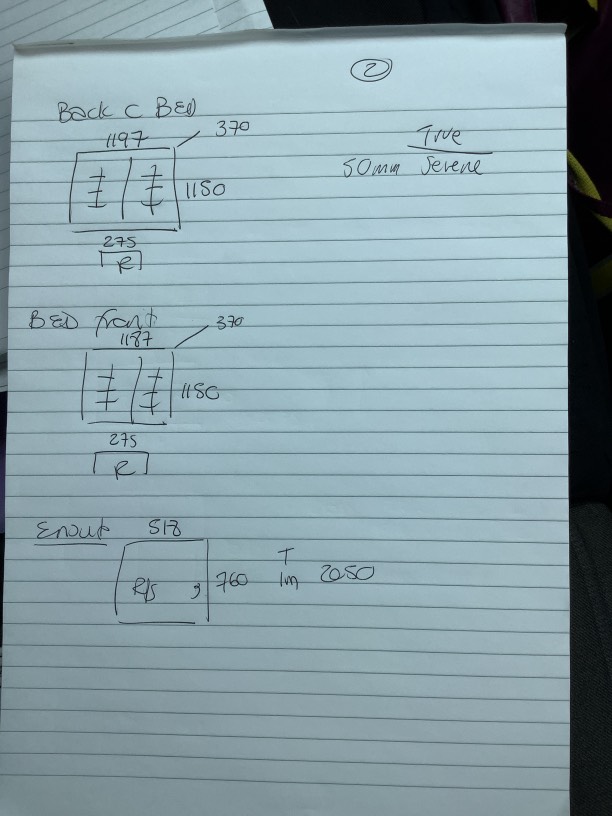 2
Back C BED
1197
370
1150
275
R
True
50mm Serene
BED front
1187
370
1150
275
R
Ensuit
518
R/S
760
T
1m 2050